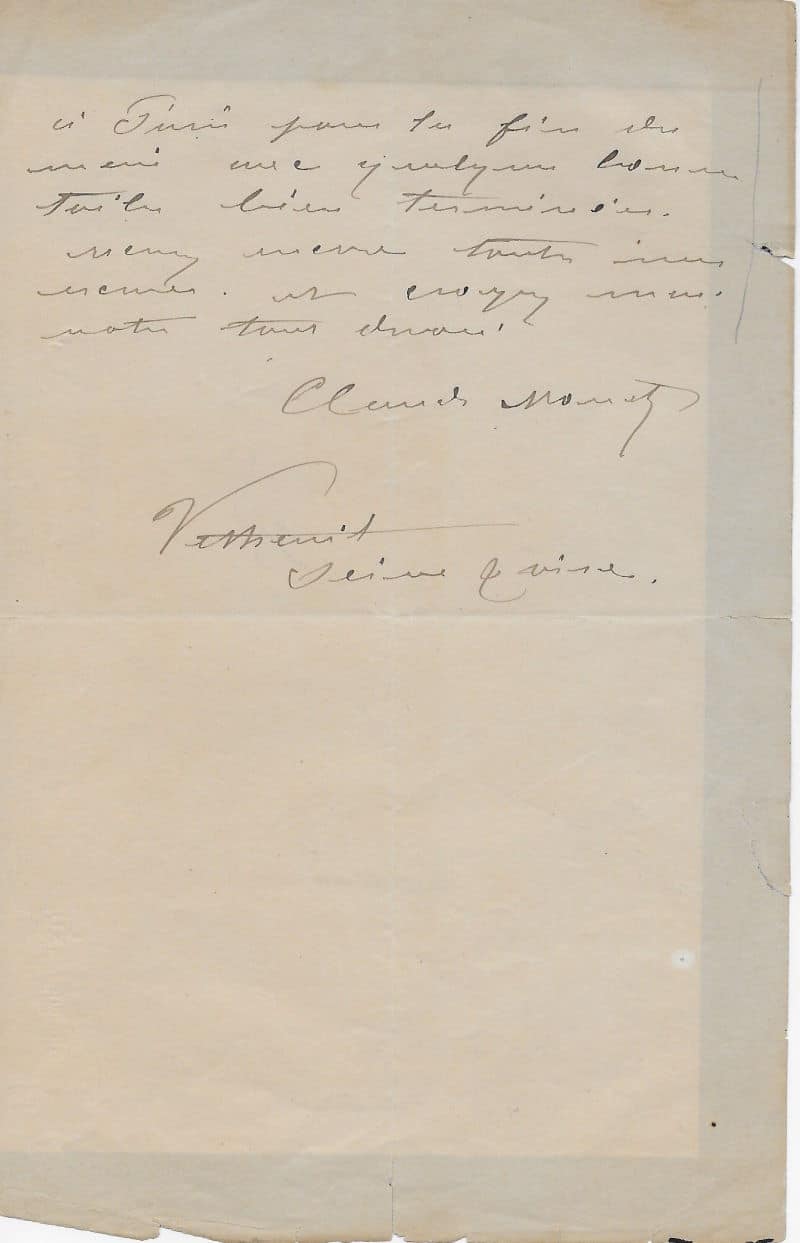 à Paris pour la fin du
mois avec quelques bonnes
toiles bien terminées.
encore toutes mes
excuses. et croyez moi
votre tout dévoué
Claude Monet
Vetheuil
Seine & oise.